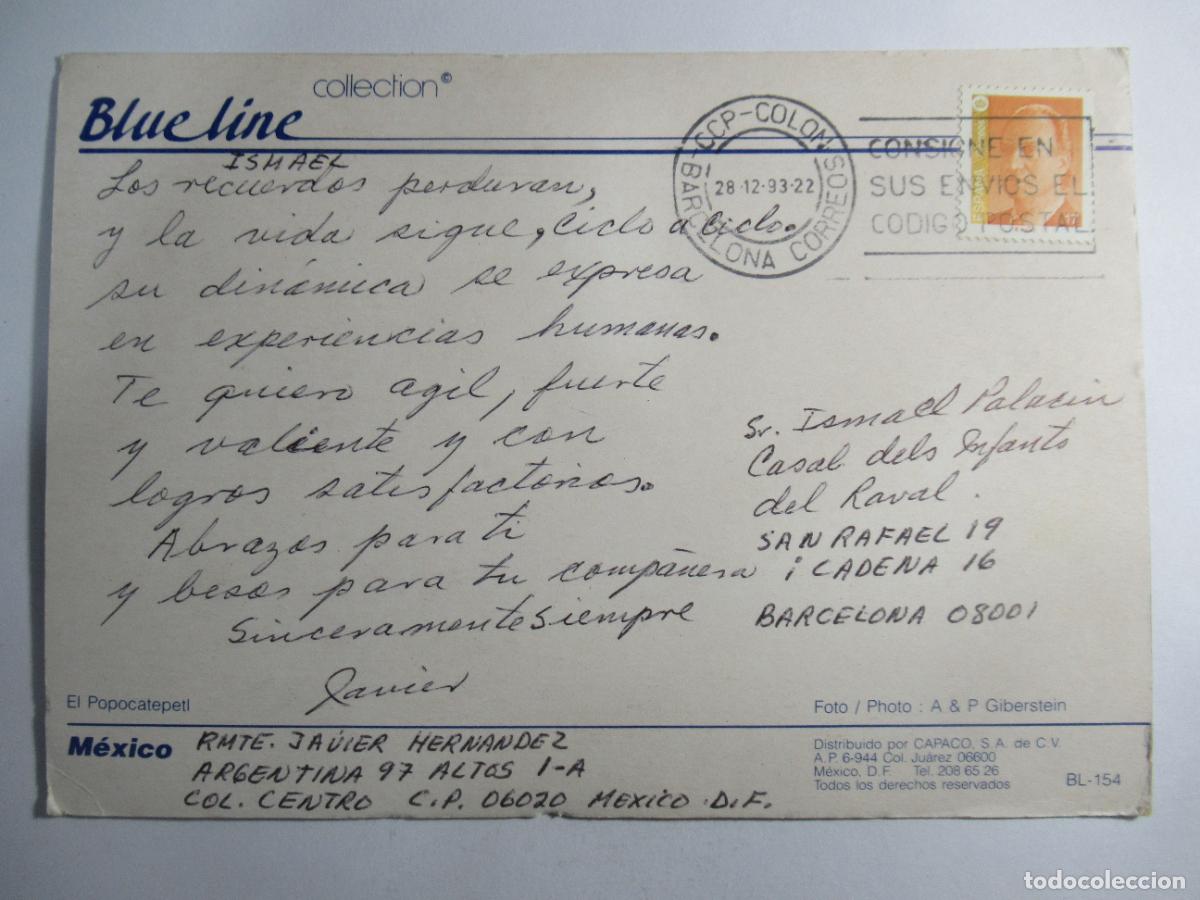 collection©
Blue line
ISMAEL
Los recuerdos perduran,
y la vida sigue, ciclo a ciclo.
su dinámica se expresa
en experiencias humanas.
Te quiero agil, fuerte
y valiente y con
logros satisfactorios.
Abrazos para ti
y besos para tu compañera
Sinceramente Siempre
Javier
CCP-COLON
28-12-93-22
BARCELONA CORREOS
CONSIGNE EN
SUS ENVIOS EL
CODIGO POSTAL
ESPAÑA
Sr. Ismael Palacin
Casal dels Infants
del Raval.
SAN RAFAEL 19
i CADENA 16
BARCELONA 08001
El Popocatepetl
Foto / Photo : A & P Giberstein
México
RMTE. JAVIER HERNANDEZ
ARGENTINA 97 ALTOS 1-A
COL. CENTRO C.P. 06020 MEXICO D.F.
Distribuido por CAPACO, S.A. de C.V.
A.P. 6-944 Col. Juárez 06600
México, D.F. Tel. 208 65 26
Todos los derechos reservados
BL-154
todocoleccion